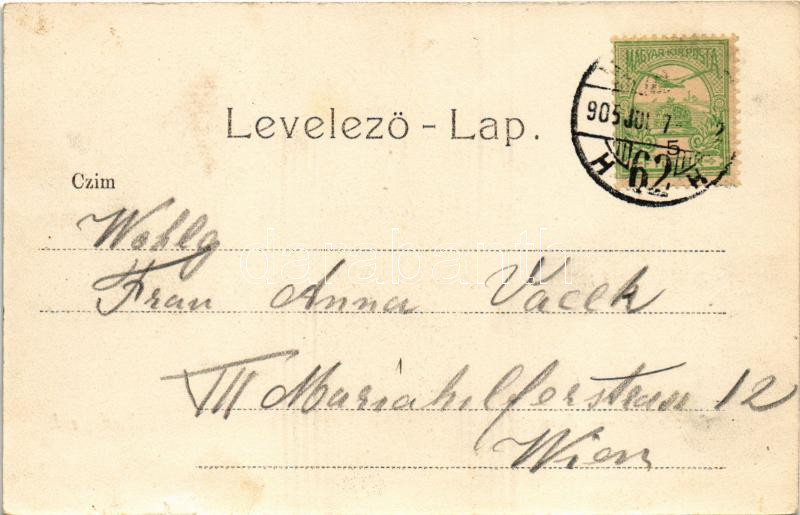 MAGYAR KIR. POSTA
905 JUL 7
5
H 62 H
Levelező - Lap.
Czim
Wohlg
Frau Anna Vacek
III Mariahilferstrasse 12
Wien
darabanth